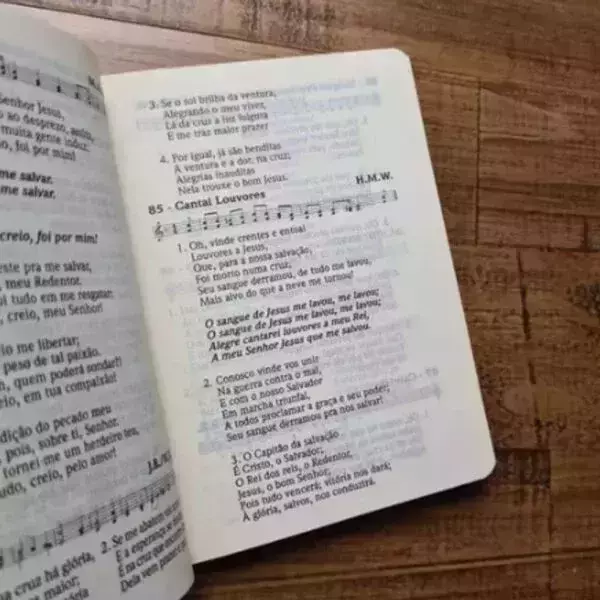 Senhor Jesus,
ao desprezo, assim,
muita gente induz,
o, foi por mim!
me salvar,
me salvar.
creio, foi por mim!
este pra me salvar,
, meu Redentor.
i tudo em me resgatar;
, creio, meu Senhor!
o me libertar;
peso de tal paixão.
h, quem poderá sondar!!
eio, em tua compaixão!
dição do pecado meu
, pois, sobre ti, Senhor.
tornei me um herdeiro teu,
udo, creio, pelo amor!
na cruz há glória,
maior;
2. Se me abatem
E a esperança se
E na cruz que
Dela vem
3. Se o sol brilha da ventura,
Alegrando o meu viver,
Lá da cruz a luz fulgura
E me traz maior prazer
4. Por igual, já são benditas
A ventura e a dor, na cruz;
Alegrias inauditas
Nela trouxe o bom Jesus.
85 - Cantai Louvores
H.M.W.
1. Oh, vinde crentes e entoai
Louvores a Jesus,
Que, para a nossa salvação,
Foi morto numa cruz;
Seu sangue derramou, de tudo me lavou,
Mais alvo do que a neve me tornou!
O sangue de Jesus me lavou, me lavou;
O sangue de Jesus me lavou, me lavou;
Alegre cantarei louvores a meu Rei,
A meu Senhor Jesus que me salvou.
2. Conosco vinde vos unir
Na guerra contra o mal,
E com o nosso Salvador
Em marcha triunfal,
A todos proclamar a graça e seu poder;
Seu sangue derramou pra nos salvar!
3. O Capitão da salvação
É Cristo, o Salvador;
O Rei dos reis, o Redentor,
Jesus, o bom Senhor;
Pois tudo vencerá; vitória nos dará;
À glória, salvos, nos conduzirá.